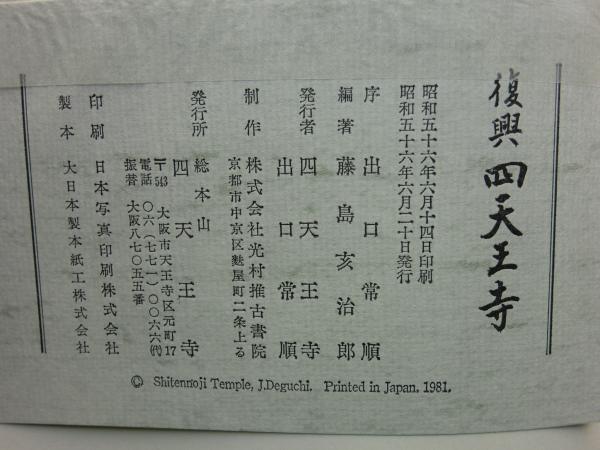 復興 四天王寺
昭和五十六年六月十四日印刷
昭和五十六年六月二十日発行
序 出口常順
編著 藤島亥治郎
発行者 四天王寺
出口常順
制作 株式会社光村推古書院
京都市中京区麩屋町二条上る
発行所 総本山
四天王寺
〒543 大阪市天王寺区元町17
電話 〇六(七七一)〇〇六六(代)
振替 大阪八七〇五五番
印刷 日本写真印刷株式会社
製本 大日本製本紙工株式会社
© Shitennoji Temple, J.Deguchi. Printed in Japan. 1981.